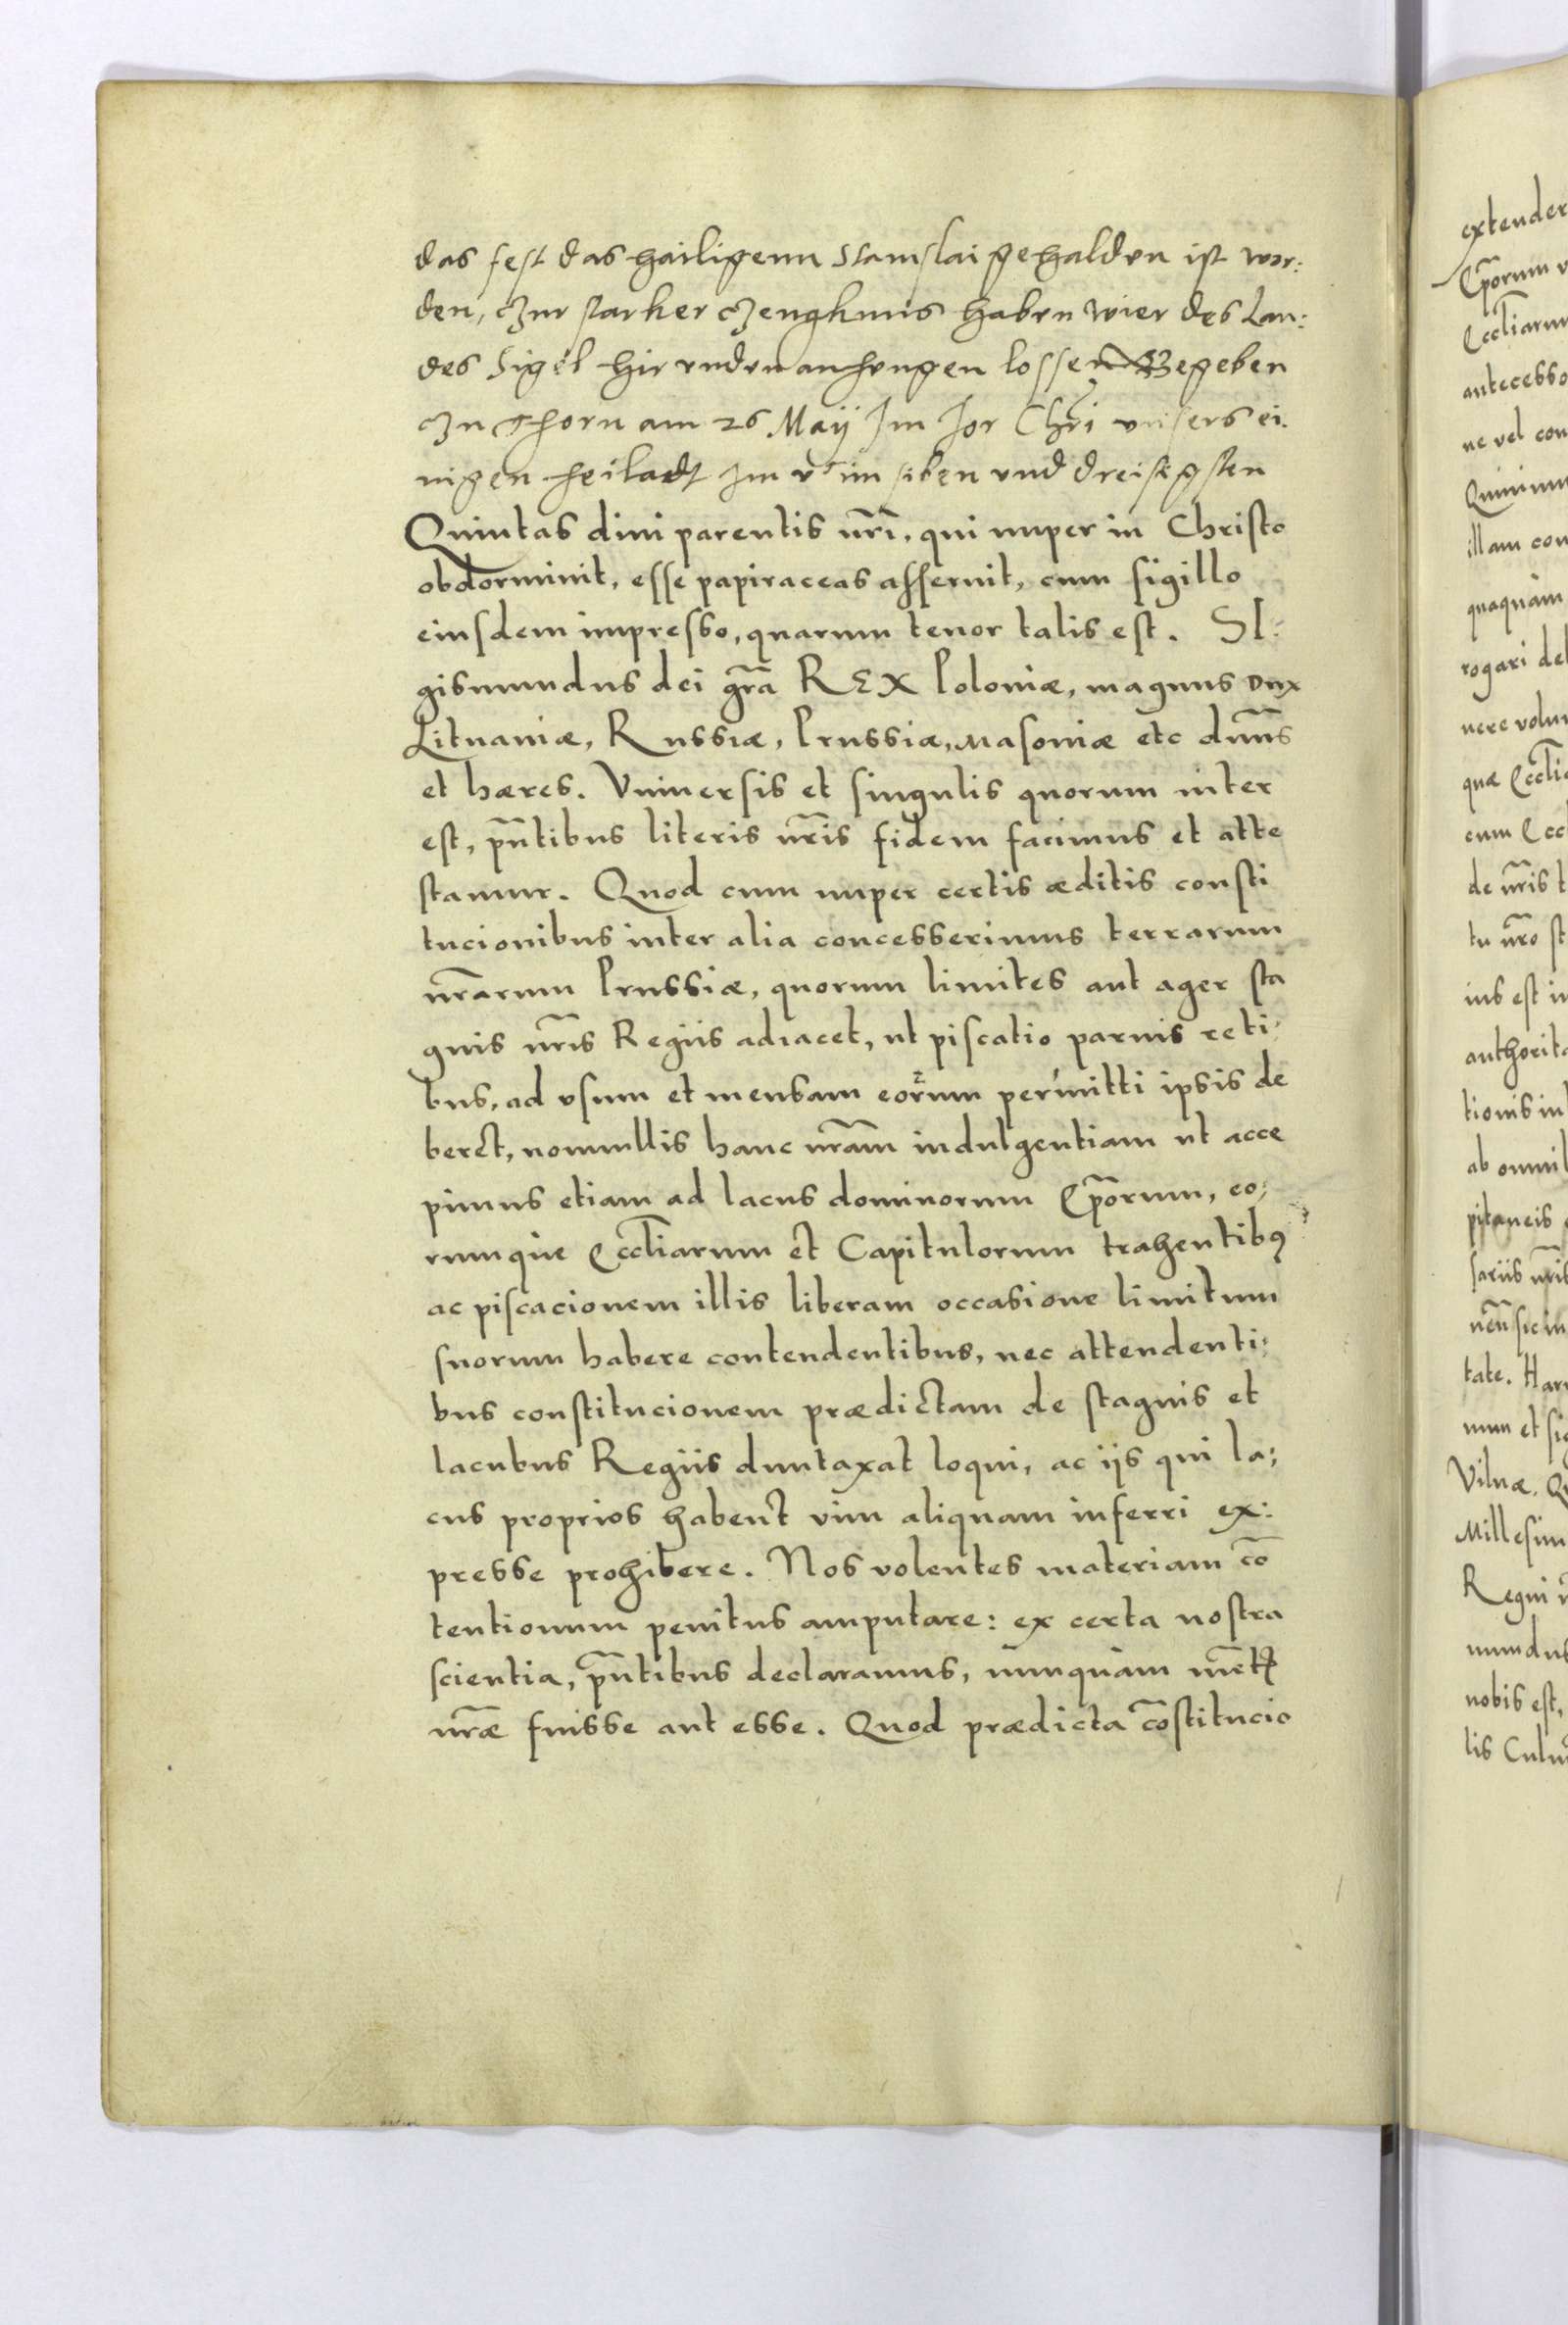 das fest das hailigenn Stanislai gehalden ist wor:
den, Czur starker Czengknus haben wier des Lan:
des Sigel hir unden anhengen lossen Gegeben
Czu Thorn am 26 Maÿ Im Jor Chr̃i unsers ei.
nigen heiladt Im siben und dreisigsten
Quintas diui parentis nr̃i, qui nuper in Christo
obdormiuit, esse papiraceas asseruit, cum sigillo
eiusdem impresso, quarum tenor talis est. SI:
gismundus dei gr̃a REX Poloniæ, magnus Dux
Lituaniæ, Russiæ, Prussiæ, Masouiæ etc dnñs
et hæres. Vniuersis et singulis quorum inter
est, pñtibus literis nr̃is fidem facimus et atte
stamur. Quod cum nuper certis æditis consti
tucionibus inter alia concesserimus terrarum
nr̃arum Prussiæ, quorum limites aut ager sta
gnis nr̃is Regiis adiacet, ut piscatio paruis reti:
bus, ad vsum et mensam eorum permitti ipsis de
beret, nonnullis hanc nr̃am indulgentiam ut acce
pimus etiam ad lacus dominorum Ep̃orum, eo:
rumque Eccl̃iarum et Capitulorum trahentibꝰ
ac piscacionem illis liberam occasione limitum
suorum habere contendentibus, nec attendenti:
bus constitucionem prædictam de stagnis et
lacubus Regiis duntaxat loqui, ac ijs qui la:
cus proprios habent vim aliquam inferri ex:
presse prohibere. Nos volentes materiam cõ
tentionum penitus amputare: ex certa nostra
scientia, pñtibus declaramus, nunquam mẽtis
nr̃æ fuisse aut esse. Quod prædicta cõstitucio
extender
Ep̃orum
Eccl̃iarum
antecesso
ne vel con
illam con
quaquam
rogari de
nere volu
quæ Eccl̃i
cum Ecc
de nr̃is t
tu nr̃o st
ius est in
authorita
tionis in
ab omni
pitaneis
sariis nr̃is
tate. Har
num et si
Vilnæ. Q
Millesim
Regni
mundus
nobis est,
lis Culm